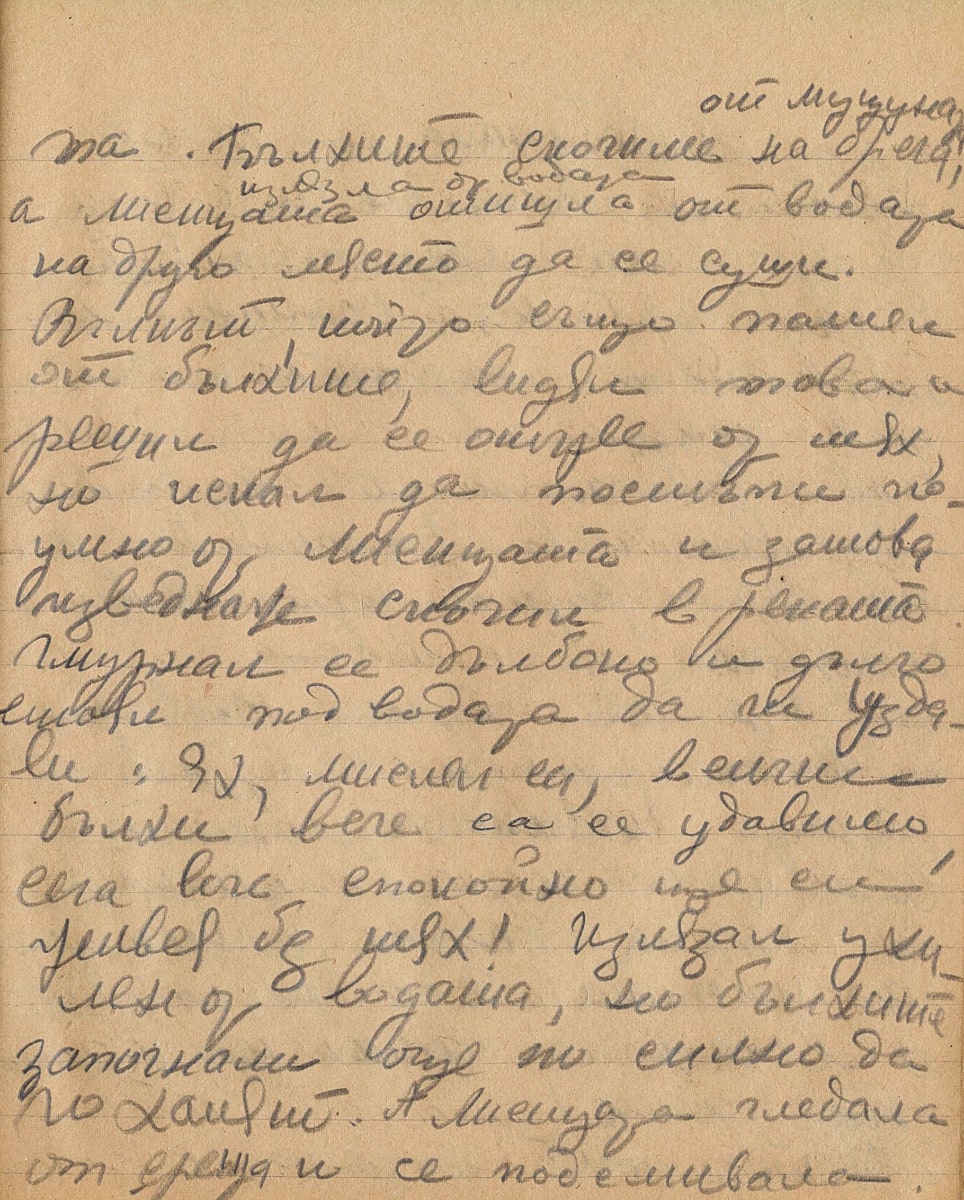 от муцуна
та. Бълхите скочиле на брега,
излязла от водата
а Лисицата отишла от водата
на друго място да се суши.
Вълкът, който също пател
от бълхите, видял това и
решил да се отърве от тях,
но искал да постъпи по-
умно от Лисицата и затова
изведнаж скочил в реката.
Гмурнал се дълбоко и дълго
стоял под водата да ги изда-
ви. Ях, мислел си, всички
бълхи вече са се удавило,
сега вече спокойно ще си
живея без тях! Излязал ухи-
лен от водата, но бълхите
започнали още по силно да
го хапят. А Лисицата гледала
от среща и се подсмивала.